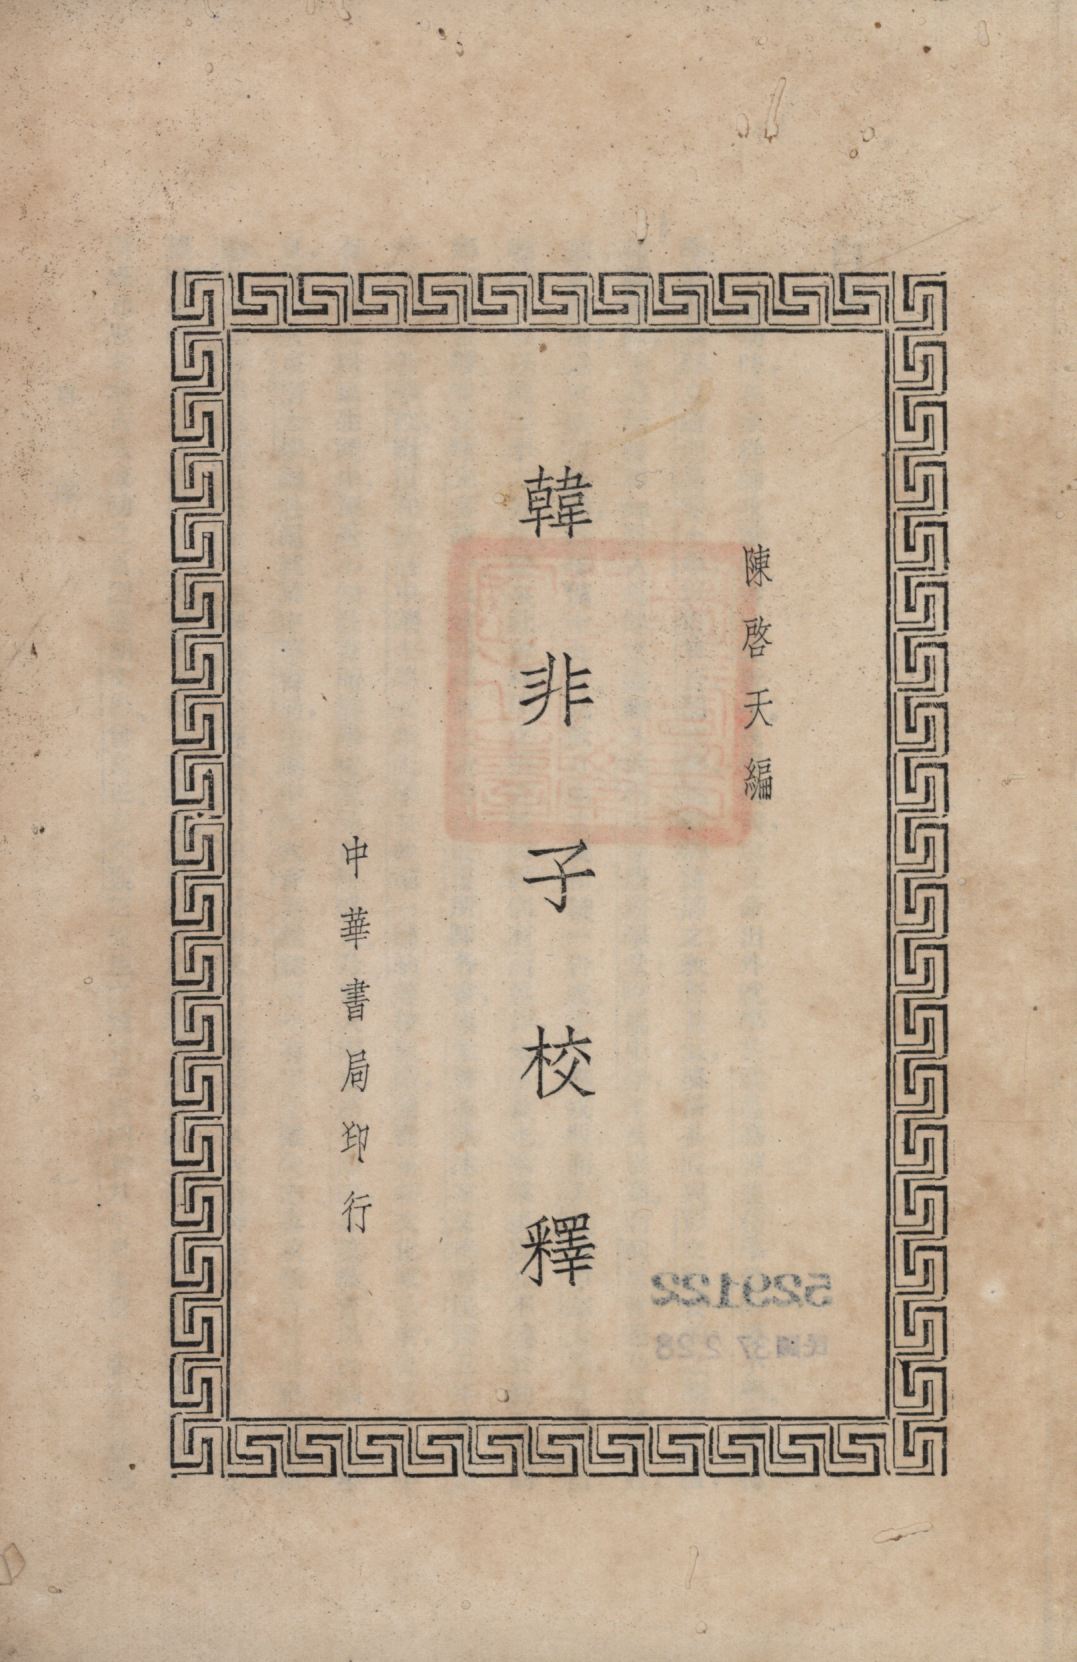 陳啓天編
韓非子校釋
中華書局印行
529122
民國37.2.28